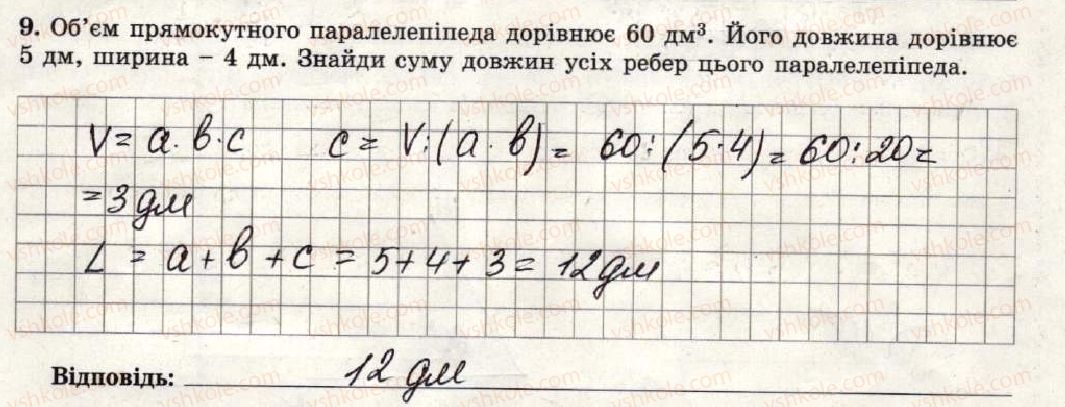 9. Об'єм прямокутного паралелепіпеда дорівнює 60 дм³. Його довжина дорівнює
5 дм, ширина – 4 дм. Знайди суму довжин усіх ребер цього паралелепіпеда.
V = a · b · c c = V : (a · b) = 60 : (5 · 4) = 60 : 20 =
= 3 дм
L = a + b + c = 5 + 4 + 3 = 12 дм
Відповідь: 12 дм